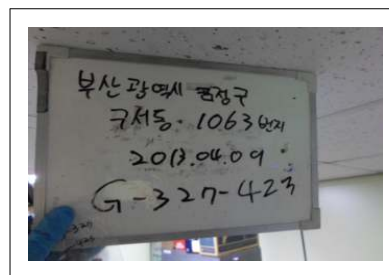 부산광역시 금정구
구서동. 1063번지
2013.04.09.
G-327-423